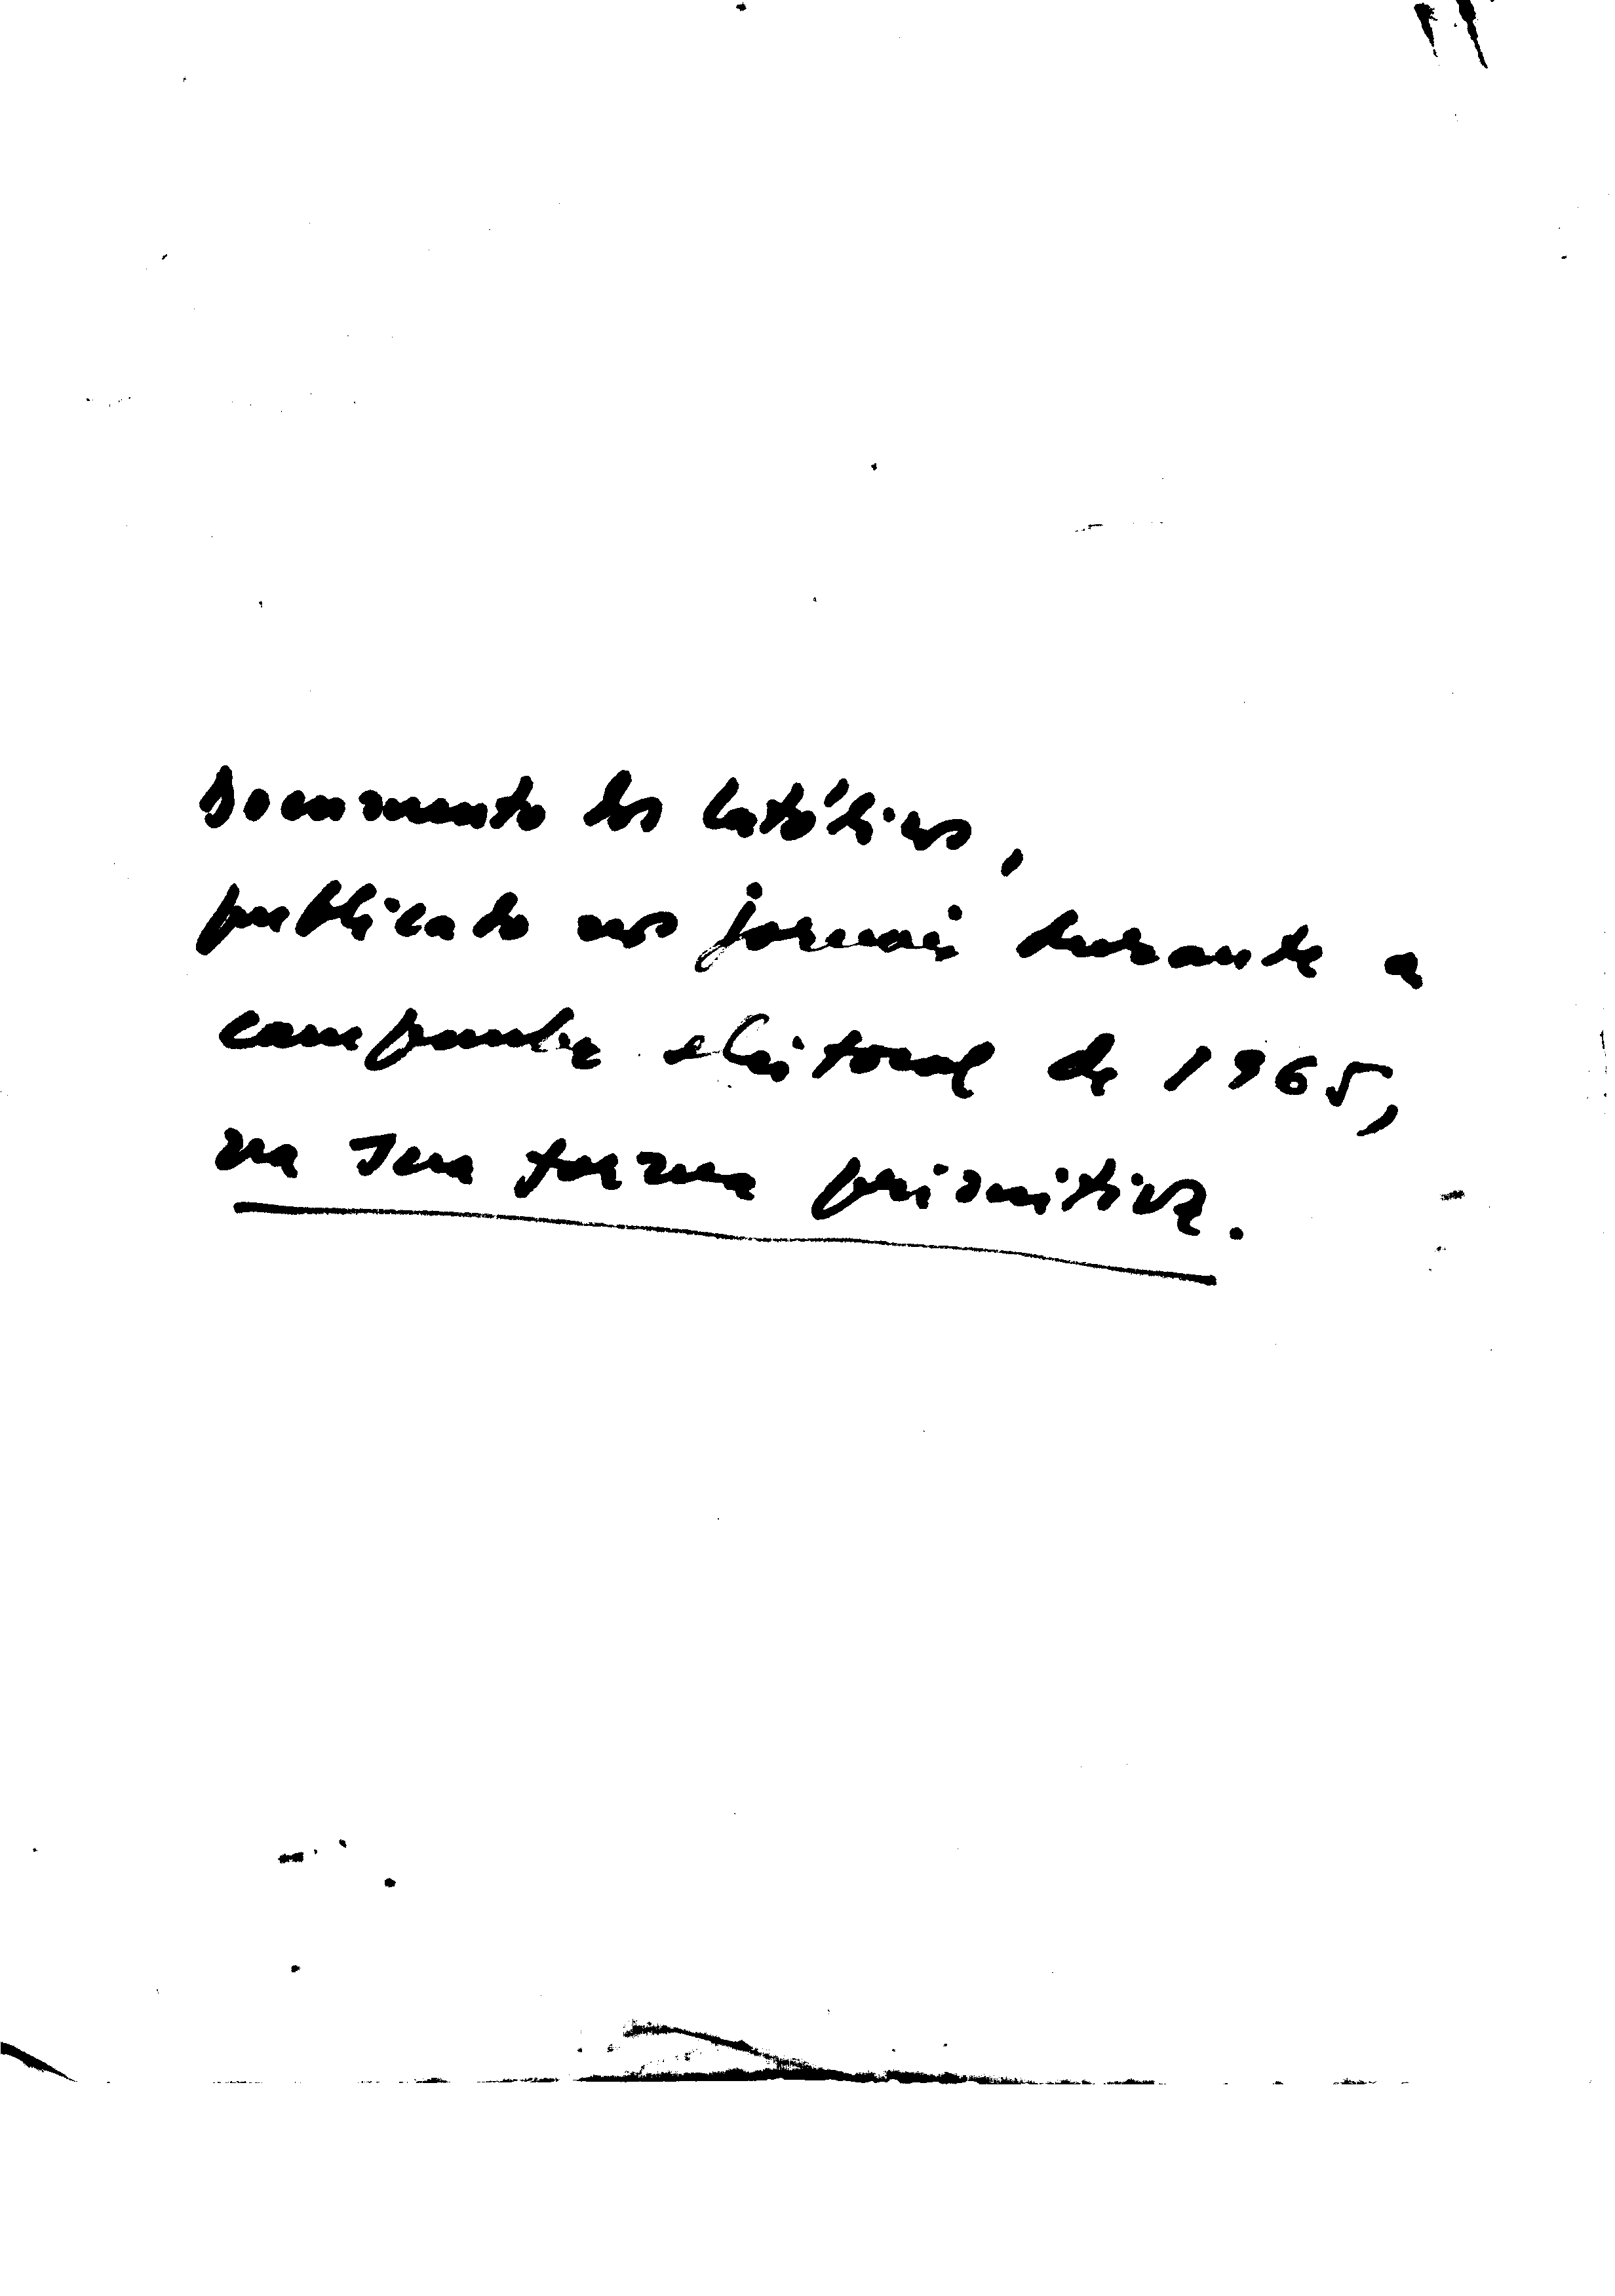 Documento dos Católicos,
publicado nos jornais durante a
campanha eleitoral de 1965,
na sua forma primitiva.